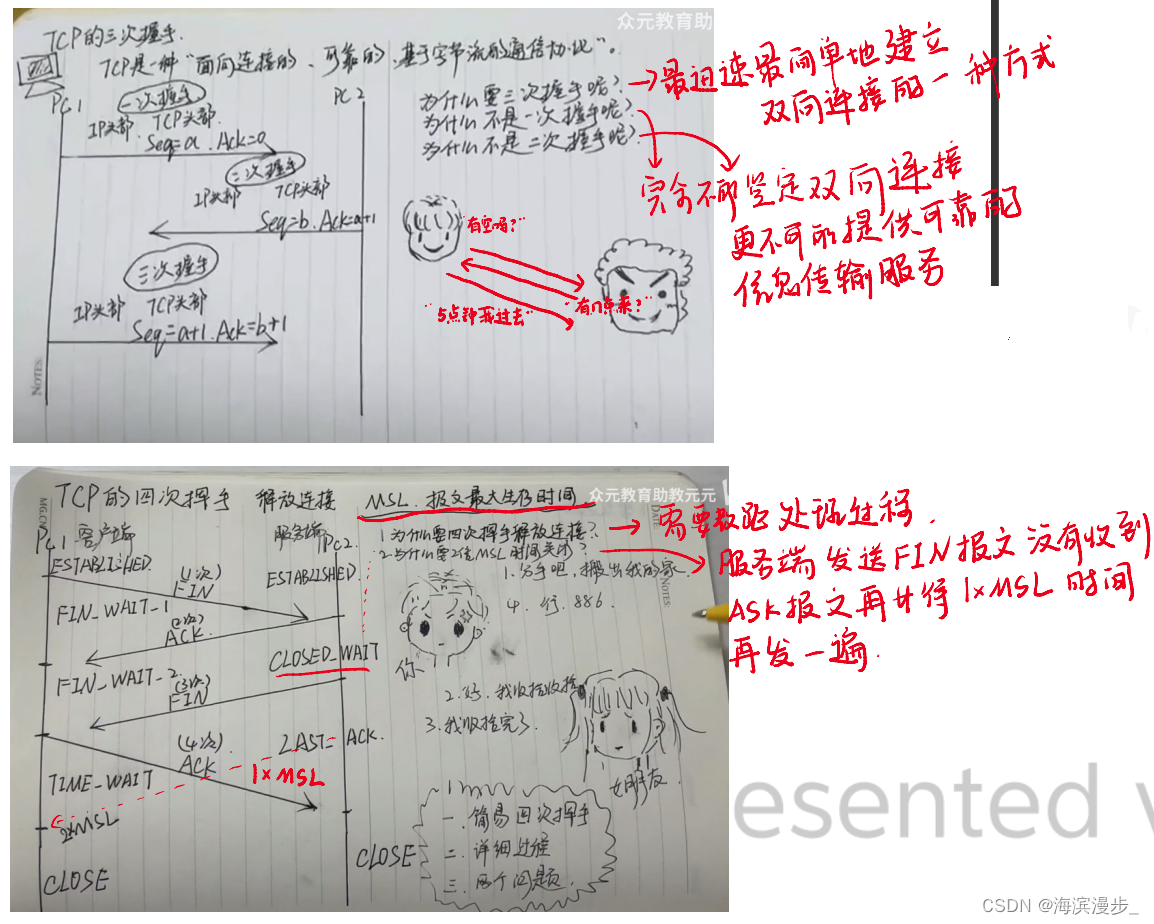 众元教育助
TCP的三次握手.
TCP是一种“面向连接的、可靠的、基于字节流的通信协议”。
PC1
PC2
一次握手
IP头部 TCP头部.
Seq=a.Ack=0
二次握手
IP头部 TCP头部
Seq=b.Ack=a+1
三次握手
IP头部 TCP头部
Seq=a+1.Ack=b+1
NOTES:
为什么要三次握手呢?
为什么不是一次握手呢?
为什么不是二次握手呢?
→最迅速最简单地建立
双向连接的一种方式
完全不即坚定双向连接
更不可能提供可靠的
信息传输服务
“有空吗?”
“有几点来?”
“5点钟我过去”
TCP的四次挥手 释放连接
MSL.报文最大生存时间
众元教育助教元元
DATE
NOTES:
PC1.客户端
服务端PC2.
ESTABLISHED
ESTABLISHED.
(1次)
FIN
FIN_WAIT-1
(2次)
ACK
CLOSED_WAIT
FIN_WAIT-2
(3次)
FIN
LAST= ACK.
(4次)
ACK
TIME_WAIT
1×MSL
2×MSL
CLOSE
CLOSE
1.为什么要四次挥手释放连接?
2.为什么要2倍MSL时间关闭?
→需要数据处理过程.
服务端发送FIN报文没有收到
ASK报文再廿得1×MSL时间
再发一遍.
1.分手吧,搬出我的家.
4.行.886.
你
2.好.我收拾收拾
3.我收拾完了.
女朋友.
一.简易四次挥手
二.详细过程
三.两个问题.
esented v
CSDN @海滨漫步_